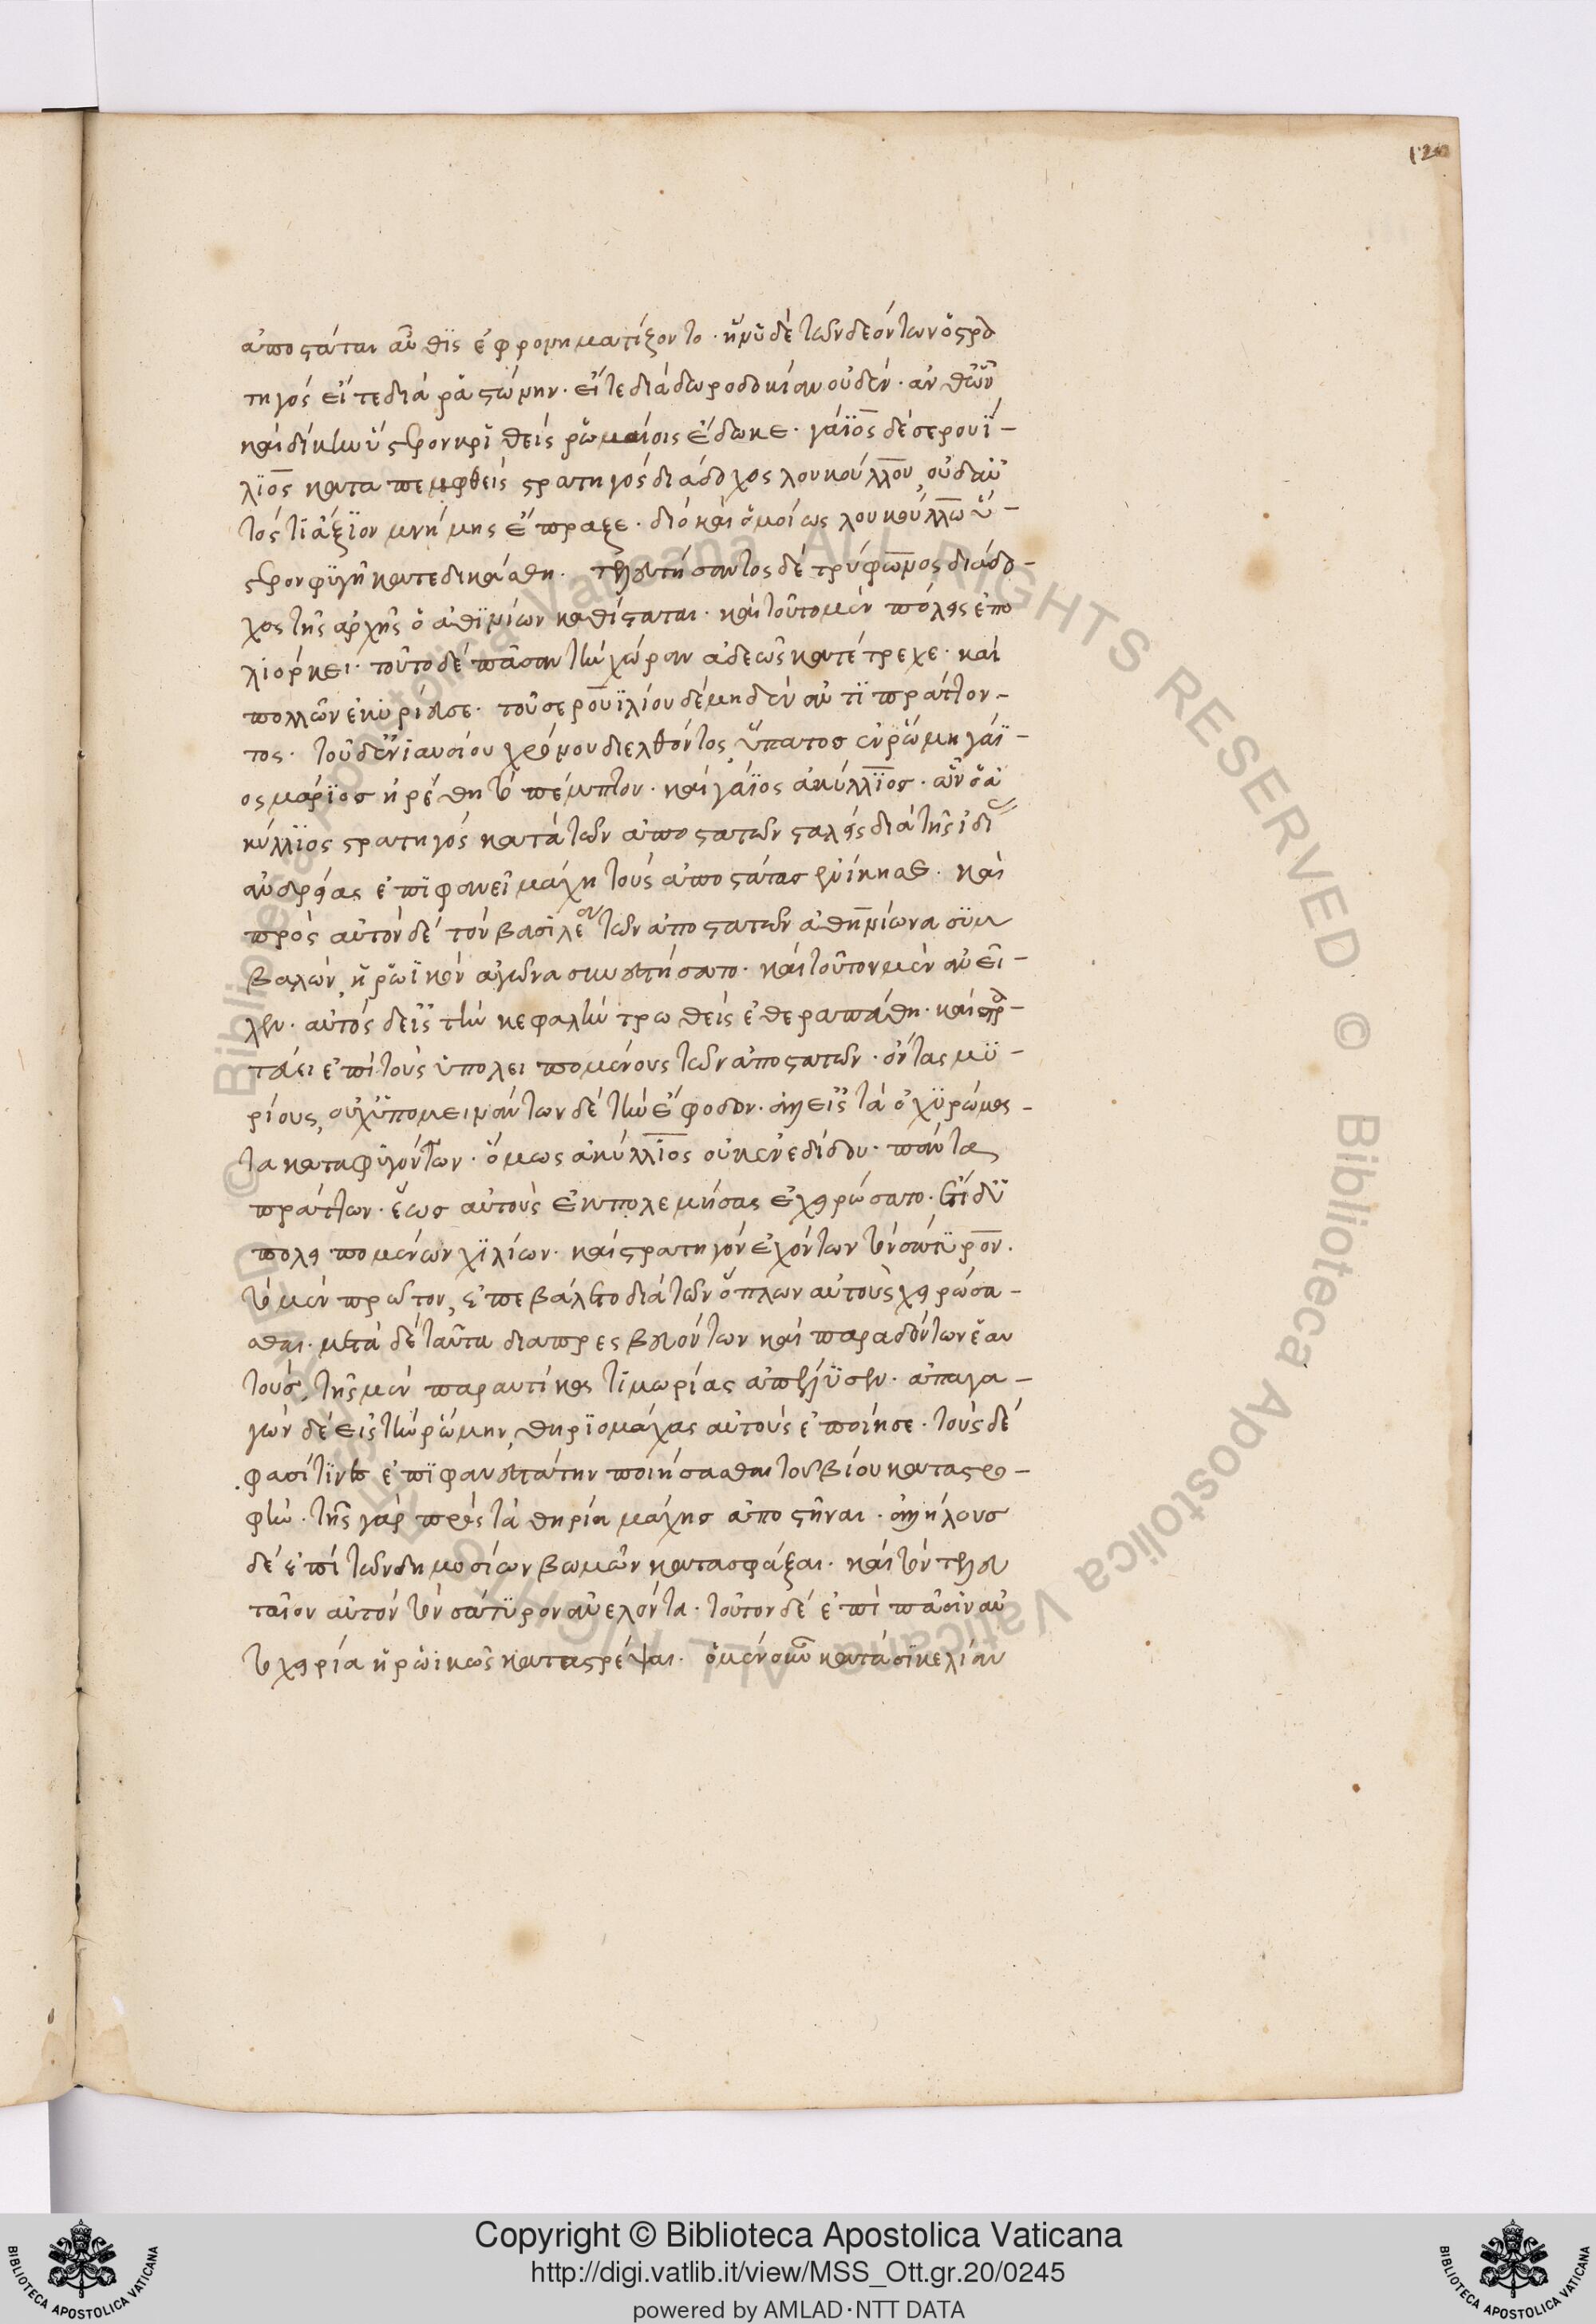 120
ἀποστάται αὖθις ἐφρονηματίζοντο. ἤνυε δὲ τῶν δεόντων ὁ στρα
τηγός εἴτε διὰ ῥαστώνην. εἴτε διὰ δωροδοκίαν οὐδέν. ἀνθῶν
καὶ δίκην ὕστερον κριθείς ῥωμαίοις ἔδωκε. γάϊος δὲ σερουΐ-
λϊος καταπεμφθεὶς στρατηγός διάδοχος λουκούλλου, οὐδ' αὐ
τός τι ἄξϊον μνήμης ἔπραξε. διὸ καὶ ὁμοίως λουκούλλω ὕ-
στερον φϋγῆ κατεδικάσθη. τελευτήσαντος δὲ τρύφωνος διάδο-
χος τῆς ἀρχῆς ὁ ἀθϊνίων καθίσταται. καὶ τοῦτο μὲν πόλεις ἐπο
λιόρκει. τοῦτο δὲ πᾶσαν τὴν χώραν ἀδεῶς κατέτρεχε. καὶ
πολλῶν ἐκυρίευσε. τοῦ σερουϊλίου δὲ μηδὲν αὐτϊ πράττον-
τος. τοῦ δ' ἐνϊαυσίου χρόνου διελθόντος, ὕπατος ἐν ῥώμη γάϊ-
ος μάρϊος ἡρέθη τὸ πέμπτον. καὶ γάϊος ἀκύλλϊος. ὧν ὁ ἀ
κύλλϊος στρατηγός κατὰ τῶν ἀποστατῶν σταλεὶς διὰ τῆς ἰδί
ἀνδρείας ἐπϊφανεῖ μάχη τοὺς ἀποστάτας ἐνίκησε. καὶ
πρὸς αὐτὸν δὲ τὸν βασιλέαν τῶν ἀποστατῶν ἀθηνίωνα συμ
βαλὼν, ἡρωϊκὸν ἀγῶνα συνεστήσατο. καὶ τοῦτον μὲν ἀνεῖ-
λεν. αὐτὸς δ' εἰς τὴν κεφαλὴν τρωθεὶς ἐθεραπεύθη. καὶ στρα-
τεύει ἐπὶ τοὺς ὑπολειπομένους τῶν ἀποστατῶν. ὄντας μϋ-
ρίους, οὐχ ὑπομεινάντων δὲ τὴν ἔφοδον. ἀλλ' εἰς τὰ ὀχϋρώμα-
τα καταφϋγόντων. ὅμως ἀκύλλϊος οὐκ ἐνεδίδου. πάντα
πράττων. ἕως αὐτοὺς ἐκπολεμήσας ἐχειρώσατο. ἔτι δ' ὑ
πολειπομένων χϊλίων. καὶ στρατηγὸν ἐχόντων τὸν σάτϋρον.
τὸ μὲν πρῶτον, ἐπεβάλετο διὰ τῶν ὅπλων αὐτοὺς χειρώσα-
σθαι. μετὰ δὲ ταῦτα διαπρεσβευόντων καὶ παραδόντων ἑαυ
τούς, τῆς μὲν παραυτίκα τϊμωρίας ἀπέλϋσεν. ἀπαγα-
γὼν δὲ εἰς τὴν ῥώμην, θηρϊομάχας αὐτοὺς ἐποίησε. τοὺς δέ
φασί τϊνες ἐπϊφανεστάτην ποιήσασθαι τοῦ βίου καταστρο-
φήν. τῆς γὰρ πρὸς τὰ θηρία μάχης ἀποστῆναι. ἀλλήλους
δὲ ἐπὶ τῶν δημοσίων βωμῶν κατασφάξαι. καὶ τὸν τελευ
ταῖον αὐτὸν τὸν σάτϋρον ἀνελόντα. τοῦτον δὲ ἐπὶ πᾶσιν αὐ
τοχειρία ἡρωϊκῶς καταστρέψαι. ὁ μὲν οὖν κατὰ σϊκελίαν
Copyright © Biblioteca Apostolica Vaticana
http://digi.vatlib.it/view/MSS_Ott.gr.20/0245
powered by AMLAD·NTT DATA